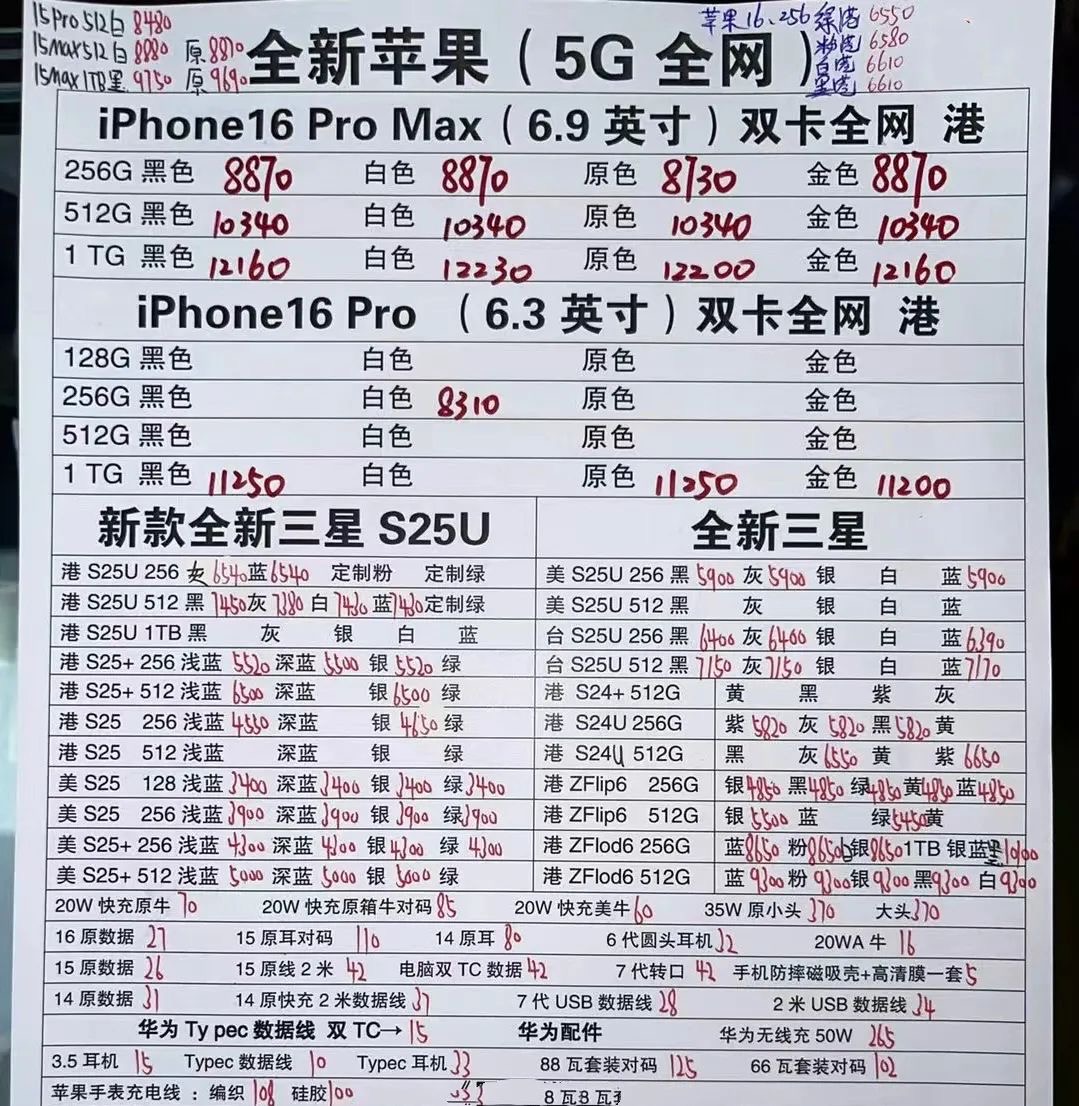 15Pro512白8480
15Max512白8880 原8870
15Max1TB黑9750 原9690
苹果16、256绿港6550
粉港6580
白港6610
黑港6610
全新苹果（5G 全网）
iPhone16 Pro Max（6.9 英寸）双卡全网 港
256G 黑色 8870 白色 8870 原色 8730 金色 8870
512G 黑色 10340 白色 10340 原色 10340 金色 10340
1 TG 黑色 12160 白色 12230 原色 12200 金色 12160
iPhone16 Pro （6.3 英寸）双卡全网 港
128G 黑色 白色 原色 金色
256G 黑色 白色 8310 原色 金色
512G 黑色 白色 原色 金色
1 TG 黑色 11250 白色 原色 11250 金色 11200
新款全新三星 S25U
港 S25U 256 灰6540蓝6540 定制粉 定制绿
港 S25U 512 黑7450灰7380白7430蓝7430定制绿
港 S25U 1TB 黑 灰 银 白 蓝
港 S25+ 256 浅蓝 5520 深蓝 5500 银 5520 绿
港 S25+ 512 浅蓝 6500 深蓝 银6500 绿
港 S25 256 浅蓝 4550 深蓝 银 4650 绿
港 S25 512 浅蓝 深蓝 银 绿
美 S25 128 浅蓝 3400 深蓝 3400 银 3400 绿3400
美 S25 256 浅蓝 3900 深蓝 3900 银 3900 绿3900
美 S25+ 256 浅蓝 4300 深蓝 4300 银 4300 绿 4300
美 S25+ 512 浅蓝 5000 深蓝 5000 银 5000 绿
全新三星
美 S25U 256 黑 5900 灰 5900 银 白 蓝5900
美 S25U 512 黑 灰 银 白 蓝
台 S25U 256 黑 6400 灰6400 银 白 蓝6390
台 S25U 512 黑 7150 灰7150 银 白 蓝7170
港 S24+ 512G 黄 黑 紫 灰
港 S24U 256G 紫 5820 灰 5820 黑5820 黄
港 S24U 512G 黑 灰6550 黄 紫 6650
港 ZFlip6 256G 银4850 黑4850 绿4850黄4850蓝4850
港 ZFlip6 512G 银5500 蓝 绿5450黄
港 ZFlod6 256G 蓝8650 粉8650 银8650 1TB 银蓝黑
港 ZFlod6 512G 蓝 9300 粉 9300银9300 黑9300 白9300
20W 快充原牛 70 20W 快充原箱牛对码85 20W 快充美牛60 35W 原小头 370 大头370
16 原数据 27 15 原耳对码 110 14 原耳 80 6 代圆头耳机32 20WA 牛 16
15 原数据 26 15 原线 2 米 42 电脑双 TC 数据42 7 代转口 42 手机防摔磁吸壳+高清膜一套5
14 原数据 31 14 原快充 2 米数据线37 7 代 USB 数据线28 2 米 USB 数据线34
华为 Ty pec 数据线 双 TC→15 华为配件 华为无线充 50W 265
3.5 耳机 15 Typec 数据线 10 Typec 耳机33 88 瓦套装对码 125 66 瓦套装对码102
苹果手表充电线：编织108 硅胶100